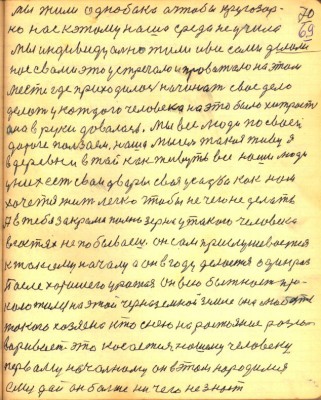 мы жили однобоко а чтобы кругозор-
70
но нас к этому наше среда не учила
69
мы индивидуално жили и все сами делали
все свами это устречаю и проважаю на этом
месте где приходилос начинат свое дело
делат у каждого человека на это было хитрост
она в руки довалас, мы все люди по своей
дороге ползаем, наша мысл такая живу я
в деревни в той как живут все наши люди
у них ест свои дворы своя усадба как нам
хочется жит легко чтобы не чего не делать
А в тебя закрама полно зерна у такого человека
в гостях не побываеш. он сам прислушивается
к такому началу а он в году делается один раз
После хорошего урожая он
на этой чернозёмной земле она любить
такого хозяена кто с нею на растояние разго-
варивает это косается нашему человеку
первому началному он в этом народился
ему дай он болже ни чего не знает